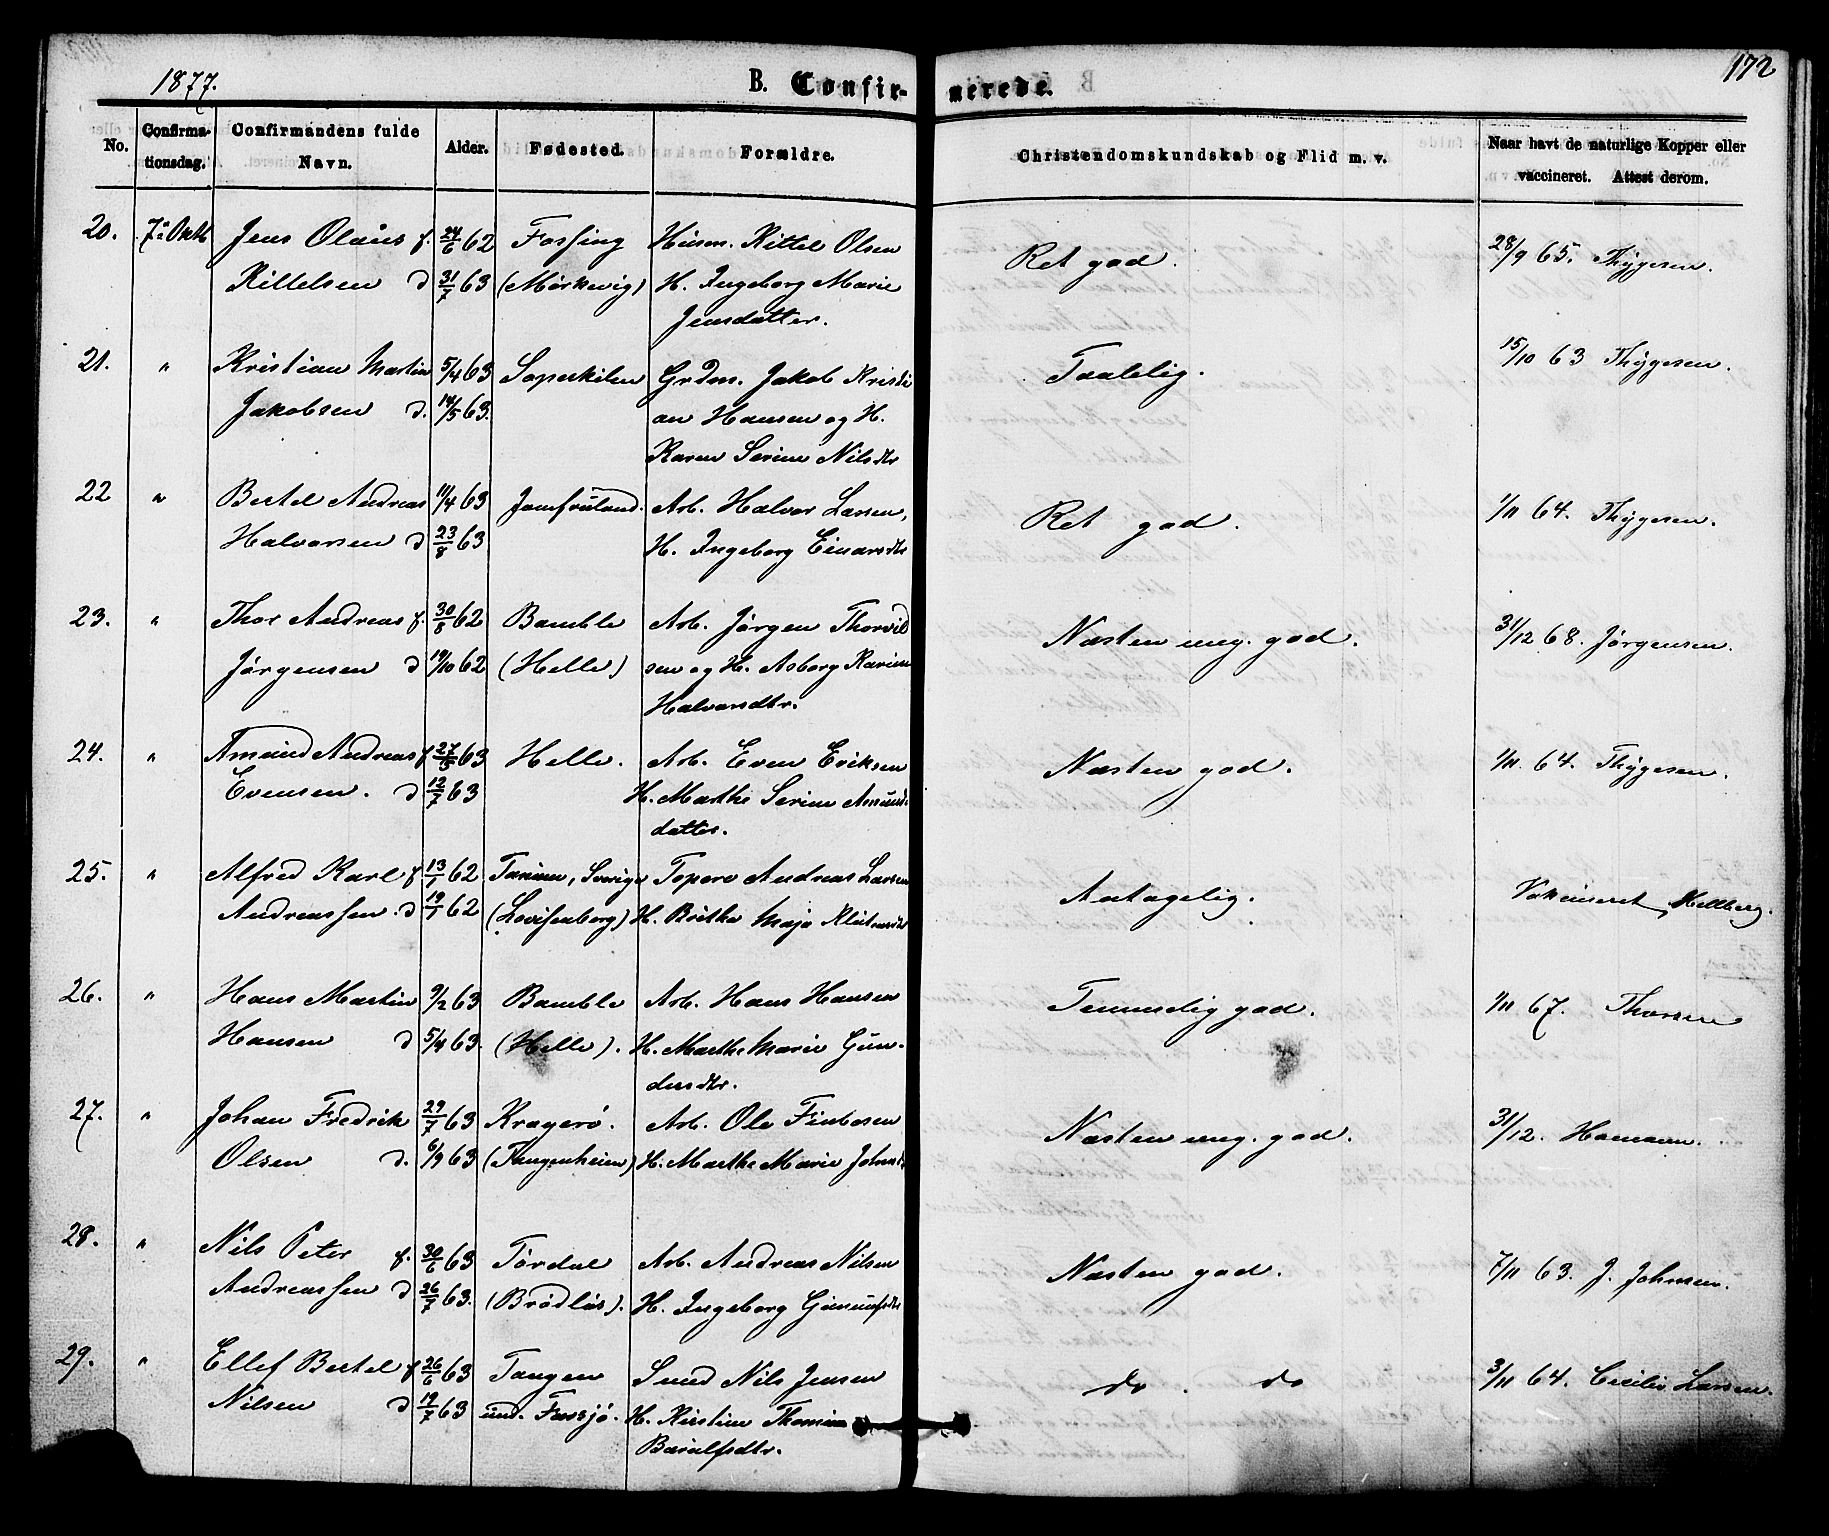 1877.
B. Confirmerede.
172
No.
Confirmationsdag.
Confirmandens fulde Navn.
Alder.
Fødested.
Forældre.
Christendomskundskab og Flid m. v.
Naar havt de naturlige Kopper eller vaccineret. Attest derom.
20. 7de Oktb Jens Olaus f. 24/6 62 Fossing Husm. Kittel Olsen Ret god. 28/9 65. Thygesen.
Kittelsen d 31/7 63 (Mørkevig) H. Ingeborg Marie
Jensdatter.
21. " Kristian Martin 5/4 63 Soperkilen Grdm. Jakob Kristi Taalelig. 15/10 63 Thygesen.
Jakobsen d. 14/5 63. an Hansen og H.
Karen Serine Nilsdtr
22 " Bertel Andreas 11/4 63 Jomfruland. Arb. Halvor Larsen, Ret god. 1/11 64. Thygesen.
Halvorsen d 23/8 63 H. Ingeborg Einarsdtr
23. " Thor Andreas f. 30/8 62 Bamble Arb. Jørgen Thorvild Næsten meg. god. 31/12 68. Jørgensen.
Jørgensen d 19/10 62 (Helle) sen og H. Asborg Karine
Halvorsdtr.
24. " Amund Andreas f 27/5 63 Helle. Arb. Even Eriksen Næsten god. 1/11. 64. Thygesen.
Evensen. d 12/7 63 H. Marthe Serine Amunds
datter.
25. " Alfred Karl f 13/1 62 Tanum, Sverige Topere Andreas Larsen Antagelig. Vakcineret, Mellberg.
Andreassen. d 19/1 62 (Lovisenborg) H. Britha Maja
26. " Hans Martin 9/2 63 Bamble Arb. Hans Hansen Temmelig god. 1/11 67. Thorsen
Hansen d 5/4 63. (Helle). H. Marthe Marie Gun-
dersdtr.
27. " Johan Fredrik 29/7 63 Kragerø. Arb. Ole Finbosen Næsten meg. god. 31/12. Homann.
Olsen d. 6/9 63 (Tangenheien) H. Marthe Marie Johnsd.
28. " Nils Peter f. 30/6 63 Tørdal Arb. Andreas Nilsen Næsten god. 7/11 63. J. Johnsen.
Andreassen d 26/7 63. (Brødløs). H. Ingeborg Gunulfsdtr
29. " Ellef Bertel f 26/6 63 Tangen Smed Nils Jensen do. do 3/11 64. Cecilie Larsen.
Nilsen d 19/7 63 und. Fossjø. H. Kirstine Thomine
Baraulfsdtr.